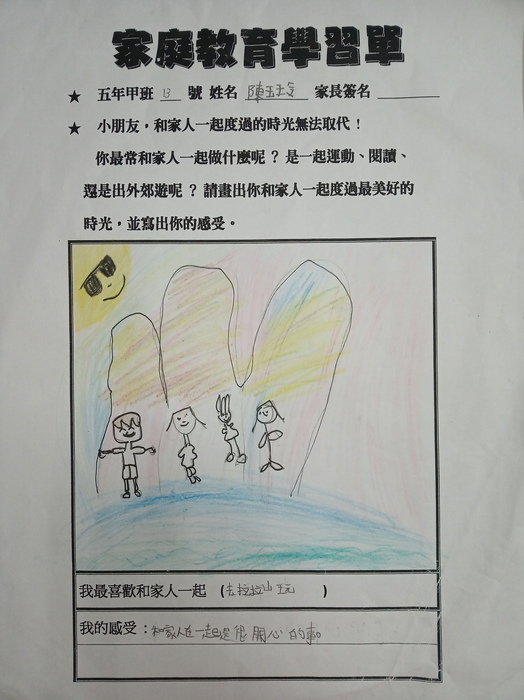 家庭教育學習單
★ 五年甲班 13 號 姓名 陳玉玲 家長簽名
★ 小朋友，和家人一起度過的時光無法取代！
你最常和家人一起做什麼呢？是一起運動、閱讀、
還是出外郊遊呢？請畫出你和家人一起度過最美好的
時光，並寫出你的感受。
我最喜歡和家人一起 (去拉拉山玩 )
我的感受：和家人在一起是很開心的事